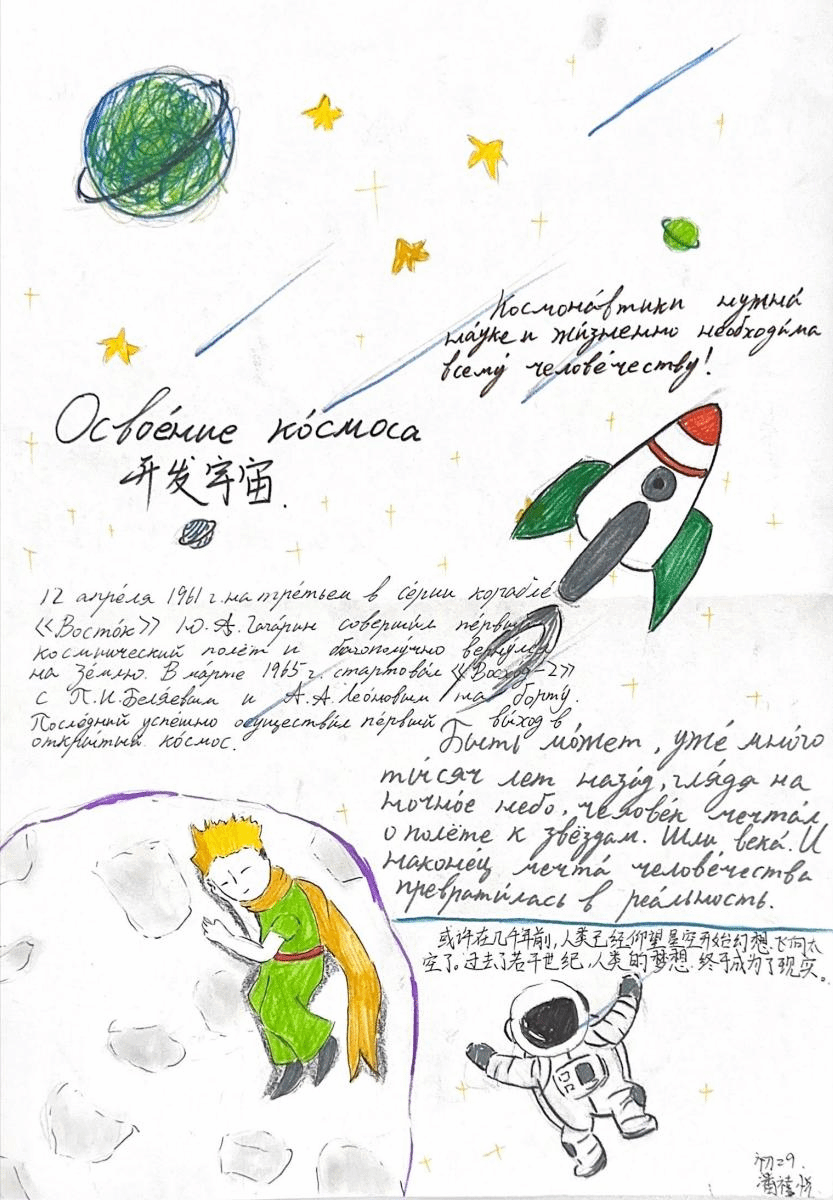 Космона́втики нужна́
нау́ке и жи́зненно необходи́ма
всему́ челове́честву!
Освое́ние ко́смоса
开发宇宙.
12 апре́ля 1961 г. на тре́тьем в се́рии корабле́
«Восто́к» Ю.А. Гага́рин соверши́л пе́рвый
косми́ческий полёт и благополу́чно верну́лся
на Зе́млю. В ма́рте 1965 г. стартова́л «Восхо́д-2»
с П.И. Беля́евым и А.А. Лео́новым на борту́.
После́дний успе́шно осуществи́л пе́рвый вы́ход в
откры́тый ко́смос.
Быть мо́жет, уже́ мно́го
ты́сяч лет наза́д, гля́дя на
ночно́е не́бо, челове́к мечта́л
о полёте к звёздам. Шли века́. И
наконе́ц мечта́ челове́чества
преврати́лась в реа́льность.
或许在几千年前,人类已经仰望星空开始幻想飞向太
空了。过去了若干世纪,人类的梦想终于成为了现实。
初29.
潘禧悦